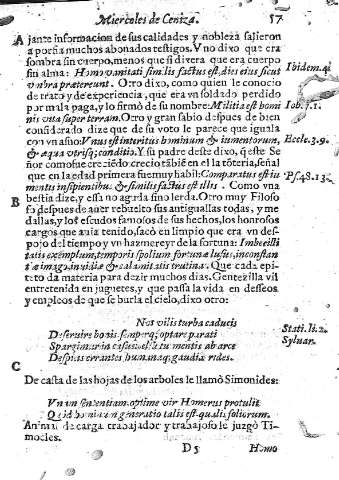 Miercoles de Ceniza. 57
A jante informacion de sus calidades y nobleza salieron
a porfia muchos abonados testigos. Vno dixo que era
sombra sin cuerpo, menos que si divera que era cuerpo
sin alma: Homo vanitati similis factus est, dies eius sicut
vmbra prætereunt. Otro dixo, como quien le conocio
de trato y de experiencia, que era vn soldado perdido
por mala paga, y lo firmò de su nombre: Militia est homi
nis vita super terram. Otro y gran sabio despues de bien
considerado dize que de su voto le parece que iguala
con vn asno: Vnus est interitus hominum & iumentorum,
& æqua vtriusq; conditio. Y su padre deste dixo, q̃ este Se
ñor como fue creciẽdo crecio tãbiẽ en el la tõteria, señal
que en la edad primera fue muy habil: Comparatus est iu
mentis insipientibus & similis factus est illis. Como vna
bestia dize, y essa no aguda sino lerda. Otro muy Filoso
B fo despues de auer rebuelto sus antiguallas todas, y me
dallas, y los escudos famosos de sus hechos, los honrosos
cargos que auia tenido, sacò en limpio que era vn des-
pojo del tiempo y vn hazmereyr de la fortuna: Imbecilli
tatis exemplum, temporis spolium fortunæ lusus, inconstan
tiæ imago, inuidiæ & calamitatis trutina. Que cada epi-
teto da materia para dezir muchos dias. Gentezilla vil
entretenida en juguetes, y que passa la vida en desseos
y empleos de que se burla el cielo, dixo otro:
Ibidem.
Iob. 7.1.
Eccle. 3.9.
Ps. 48. 13.
Nos vilis turba caducis
Deseruire bonis, semperq; optare parati
Spargimur in casus: celsa tu mentis ab arce
Despicis errantes, humanaq; gaudia rides.
Stati. li. 2.
Syluar.
C
De casta de las hojas de los arboles le llamò Simonides:
Vnam sententiam optime vir Homerus protulit
Quòd hominum generatio talis est qualis foliorum.
Animal de carga trabajador y trabajoso le juzgò Ti-
mocles.
D 5 Homo